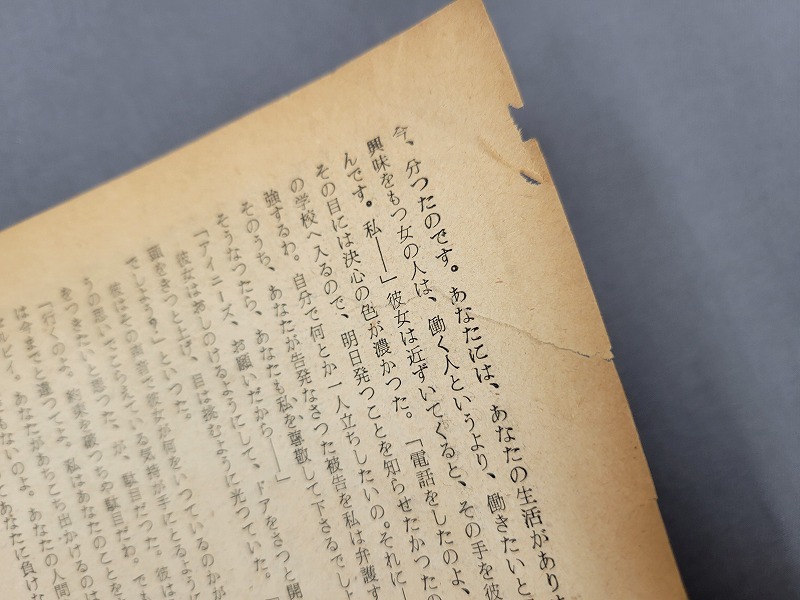 今、分つたのです。あなたには、あなたの生活があり
興味をもつ女の人は、働く人というより、働きたいと
んです。私――」彼女は近ずいてくると、その手を彼
その目には決心の色が濃かつた。「電話をしたのよ、
の学校へ入るので、明日発つことを知らせたかつたの
強するわ。自分で何とか一人立ちしたいの。それに―
そのうち、あなたが告発なさつた被告を私は弁護す
そうなつたら、あなたも私を尊敬して下さるでしよ
「アイニーズ、お願いだから――」
彼女はおしのけるようにして、ドアをさつと開
頭をきつと上げ、目は挑むように光つていた。
でしようね?」といつた。
彼はその声音で彼女が何をいつているのかが
うの思いでこらえている気持が手にとるように
をつきたいと思つた、が、駄目だつた。彼は
「行くのよ。約束を破つちや駄目だわ。でも
は今までと違つてよ。私はあなたのことを
セルビイ。あなたがあちこち出かけるのは
でもないのよ。あなたの人間
てあなたに負けな